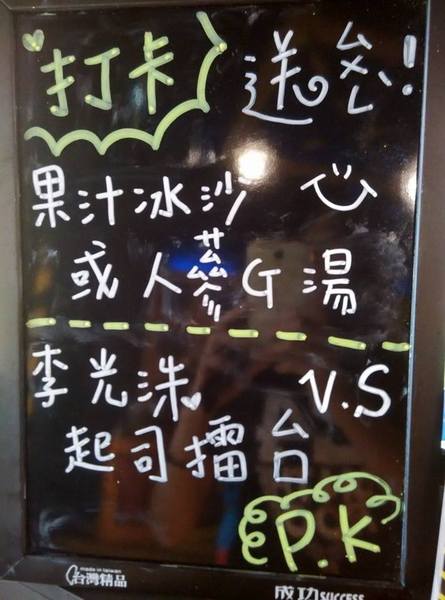 打卡 送ㄙㄨㄥˋ!
果汁冰沙
或人蔘G湯
李光洙 V.S
起司擂台
P.K
made in taiwan
台灣精品
成功SUCCESS